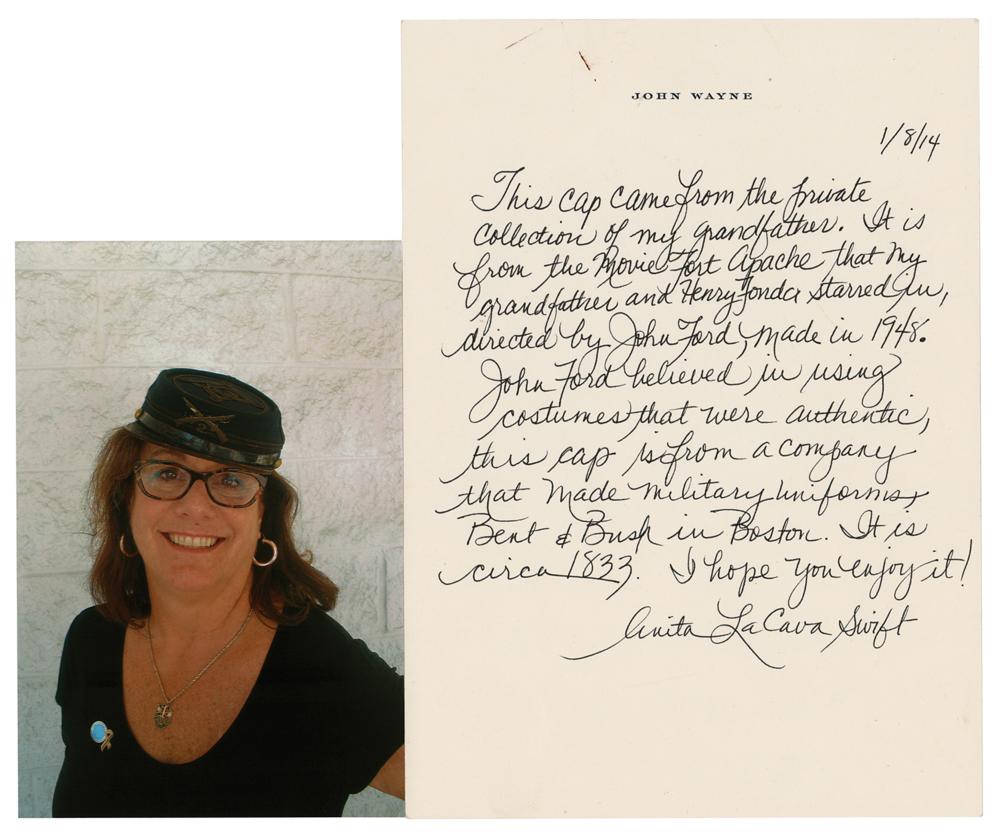 JOHN WAYNE
1/8/14
This cap came from the private
collection of my grandfather. It is
from the Movie Fort Apache that my
grandfather and Henry Fonda starred in,
directed by John Ford, made in 1948.
John Ford believed in using
costumes that were authentic,
this cap is from a company
that made military uniforms,
Bent & Bush in Boston. It is
circa 1833. I hope you enjoy it!
Anita LaCava Swift